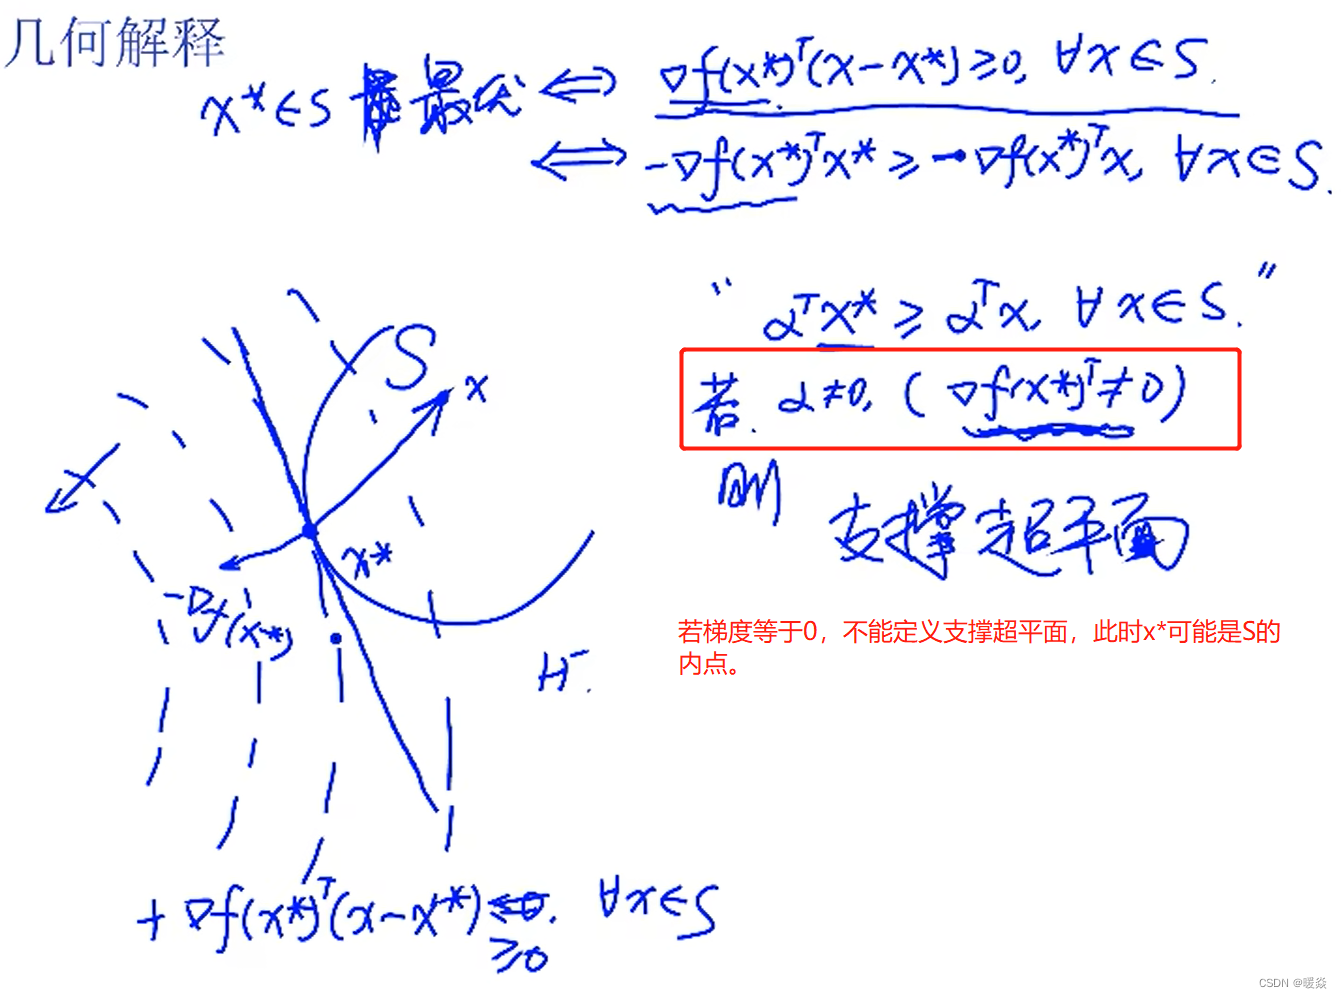 几何解释
x*∈S 最优 ⟺ ∇f(x*)ᵀ(x-x*)≥0, ∀x∈S.
⟺ -∇f(x*)ᵀx* ≥ -∇f(x*)ᵀx, ∀x∈S.
" αᵀx* ≥ αᵀx, ∀x∈S. "
若. α≠0, (∇f(x*)ᵀ≠0)
则 支撑超平面
S
x
x*
-∇f(x*)
H⁻.
若梯度等于0，不能定义支撑超平面，此时x*可能是S的
内点。
+ ∇f(x*)ᵀ(x-x*) ≥0 ∀x∈S
CSDN @暖焱